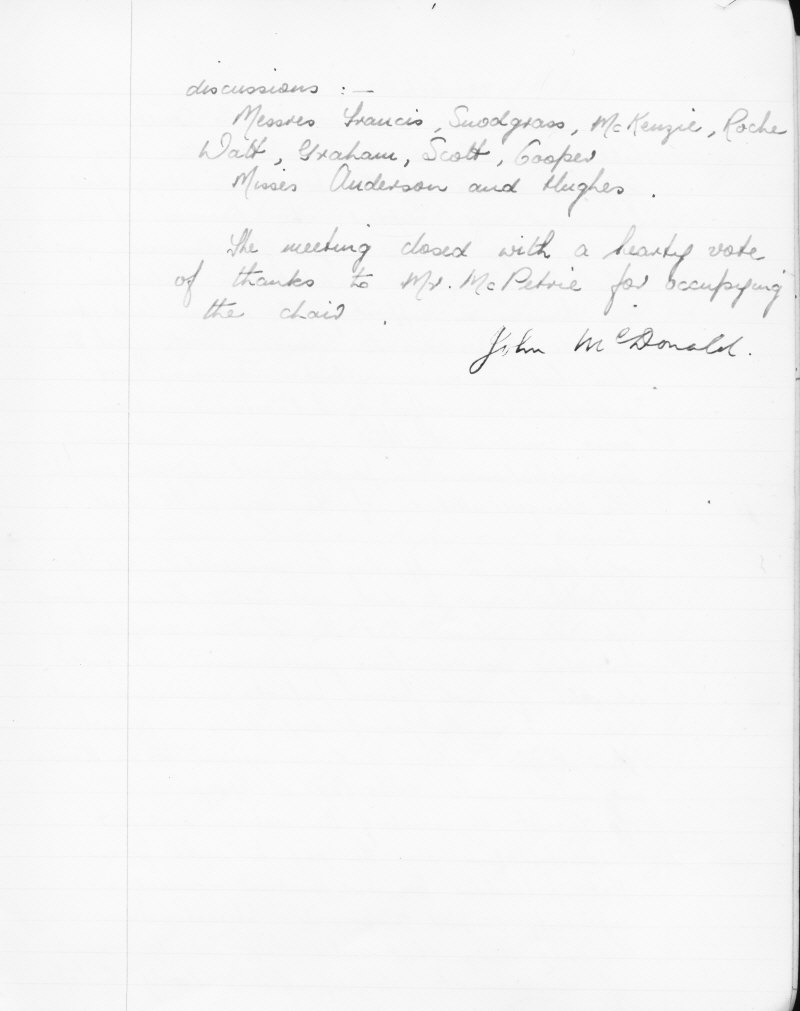 discussions :-
Messres Francis, Snodgrass, McKenzie, Roche
Watt, Graham, Scott, Cooper
Misses Anderson and Hughes.
The meeting closed with a hearty vote
of thanks to Mr. McPetrie for occupying
the chair.
John McDonald.